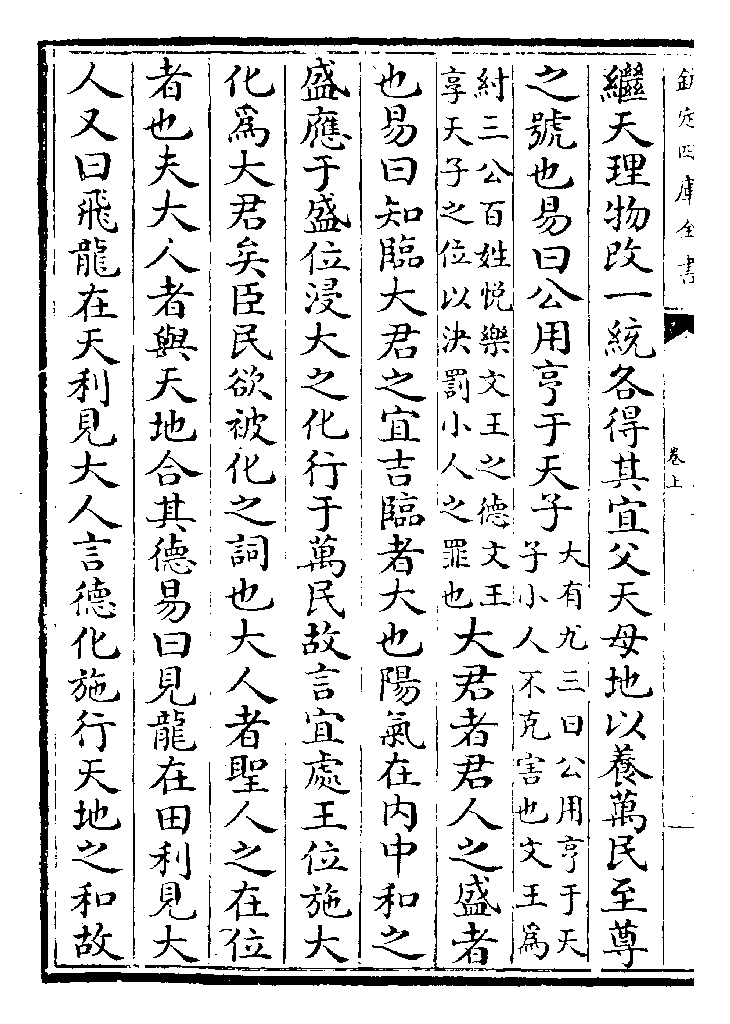 欽定四庫全書
卷上
繼天理物改一統各得其宜父天母地以養萬民至尊
之號也易曰公用亨于天子
大有九三曰公用亨于天
子小人不克害也文王為
紂三公百姓悦樂文王之德文王
享天子之位以決罰小人之罪也
大君者君人之盛者
也易曰知臨大君之宜吉臨者大也陽氣在内中和之
盛應于盛位浸大之化行于萬民故言宜處王位施大
化為大君矣臣民欲被化之詞也大人者聖人之在位
者也夫大人者與天地合其德易曰見龍在田利見大
人又曰飛龍在天利見大人言德化施行天地之和故